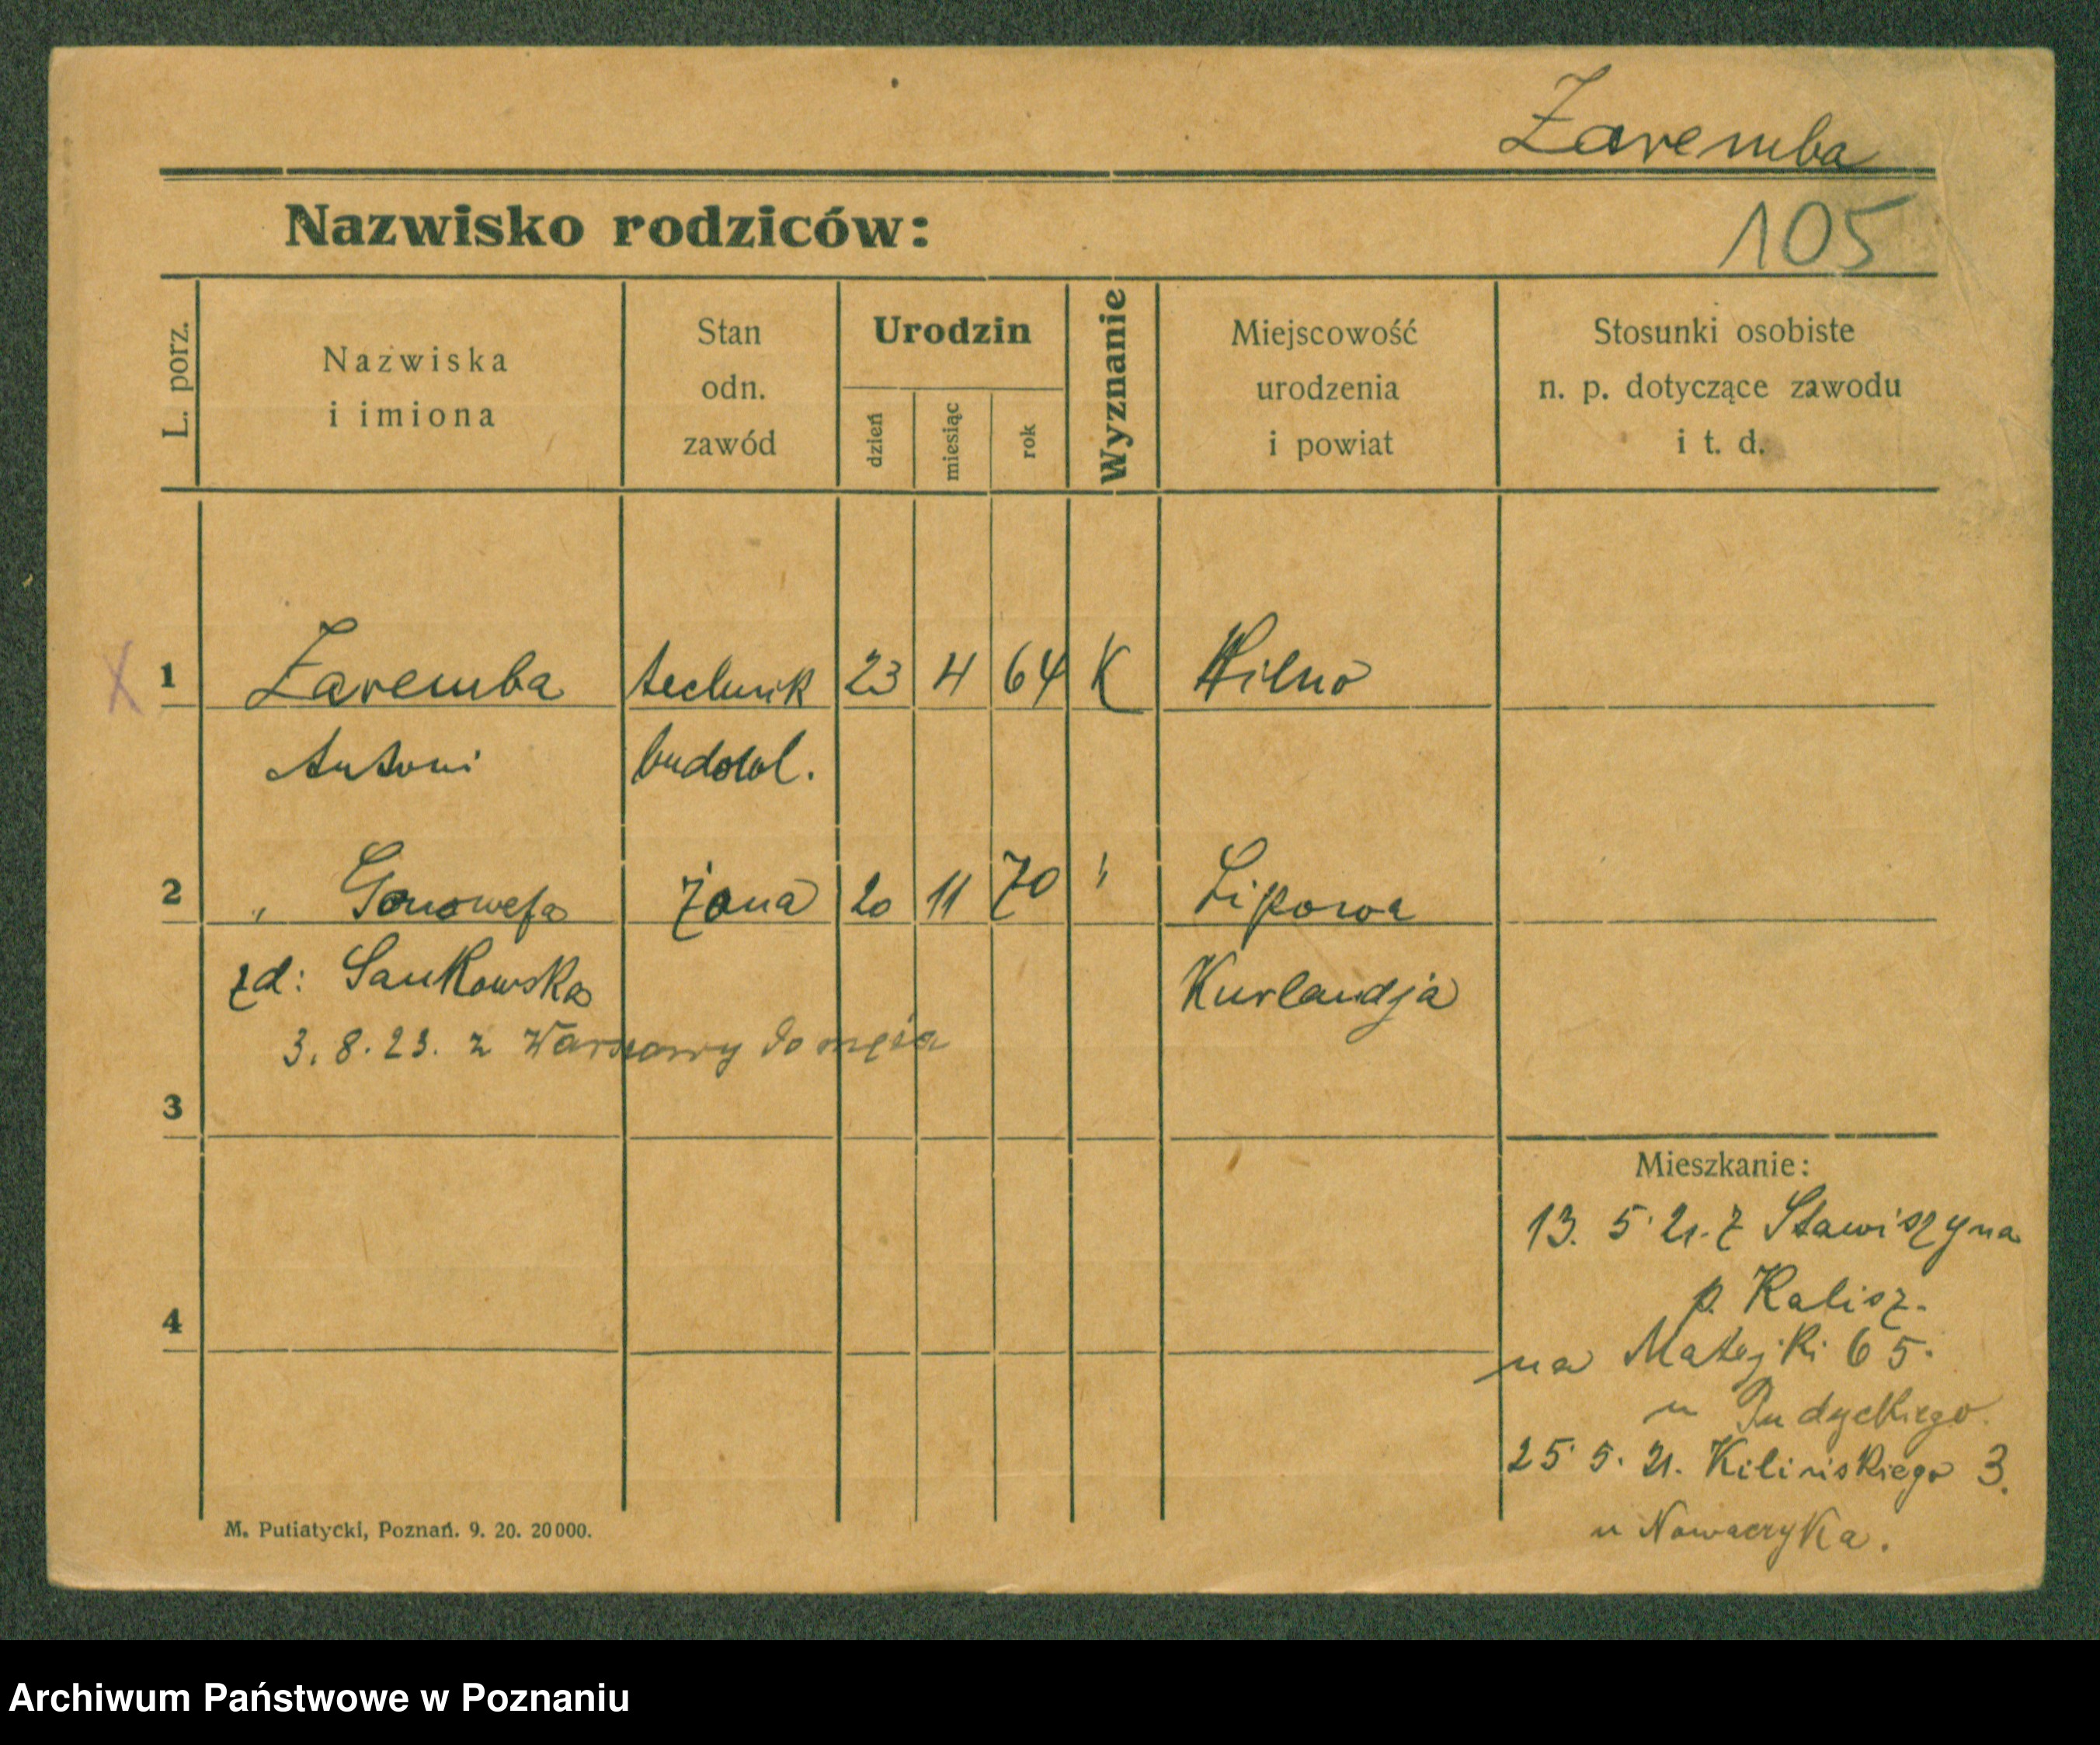 Zaremba
Nazwisko rodziców:
105
L. porz.
Nazwiska
i imiona
Stan
odn.
zawód
Urodzin
dzień
miesiąc
rok
Wyznanie
Miejscowość
urodzenia
i powiat
Stosunki osobiste
n. p. dotyczące zawodu
i t. d.
X 1 Zaremba technik 23 4 64 K Wilno
Antoni budowl.
2 " Genowefa żona 20 11 70 " Lipowa
zd: Sankowska Kurlandja
3. 8. 23. z Warszawy do męża
3
Mieszkanie:
13. 5. 21. z Stawiszyna
p. Kalisz.
4
na Matejki 65.
u
25 5. 21. Kilińskiego 3.
u Nowaczyka.
M. Putiatycki, Poznań. 9. 20. 20000.
Archiwum Państwowe w Poznaniu